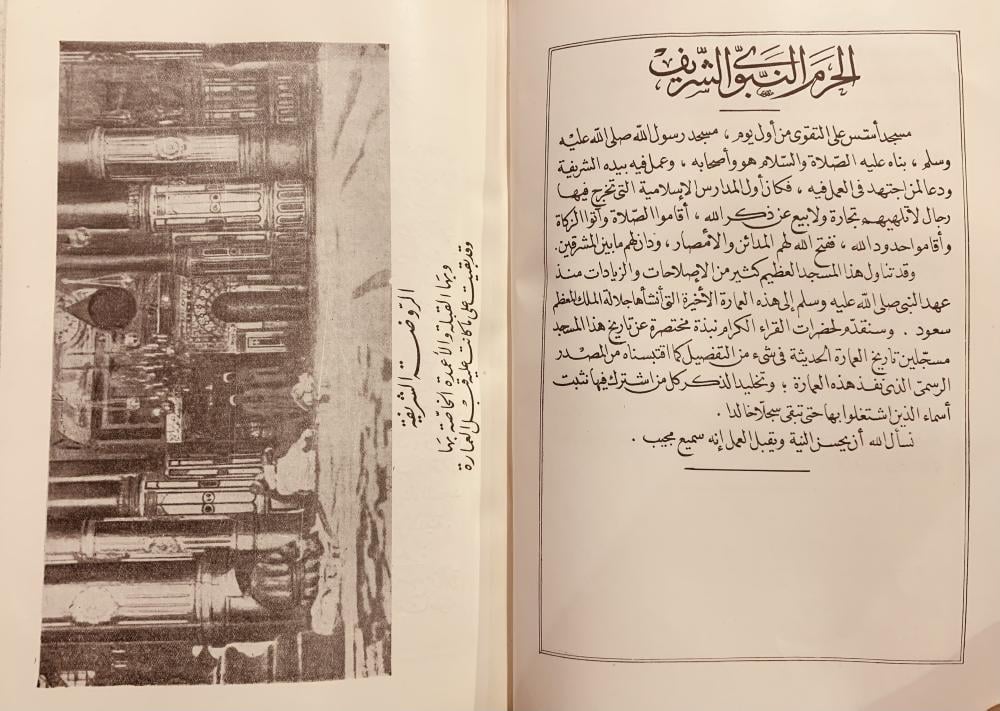 الحرم النبوي الشريف
مسجد أسس على التقوى من أول يوم ، مسجد رسول الله صلى الله عليه
وسلم ، بناه عليه الصلاة والسلام هو وأصحابه ، وعمل فيه بيده الشريفة
ودعا لمن اجتهد فى العمل فيه ، فكان أول المدارس الإسلامية التى تخرج فيها
رجال لا تلهيهم تجارة ولا بيع عن ذكر الله ، أقاموا الصلاة وآتوا الزكاة
وأقاموا حدود الله ، ففتح الله لهم المدائن والأمصار ، ودان لهم ما بين المشرقين .
وقد تناول هذا المسجد العظيم كثير من الإصلاحات والزيادات منذ
عهد النبى صلى الله عليه وسلم إلى هذه العمارة الأخيرة التى أنشأها جلالة الملك المعظم
سعود . وسنقدم لحضرات القراء الكرام نبذة مختصرة عن تاريخ هذا المسجد
مسجلين تاريخ العمارة الحديثة فى شىء من التفصيل كما اقتبسناه من المصدر
الرسمى الذى نفذ هذه العمارة ؛ وتخليدا لذكر كل من اشترك فيها نثبت
أسماء الذين اشتغلوا بها حتى تبقى سجلا خالدا .
نسأل الله أن يحسن النية ويتقبل العمل إنه سميع مجيب .
الروضة الشريفة
وبها القبلة والأعمدة الخاصة بها
وقد بقيت على ما كانت عليه قبل العمارة